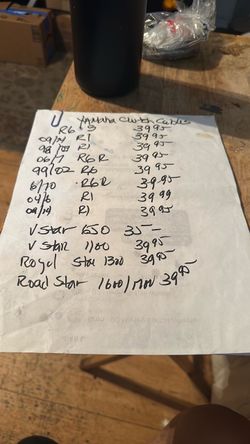 U YAMAHA Clutch Cables
R6 S 39.95
09/14 R1 39.95
98/03 R1 39.95
06/7 R6R 39.95
99/02 R6 39.95
8/10 R6R 39.95
04/6 R1 39.99
04/14 R1 39.95
V Star 650 35-
V Star 1100 39.95
Royal Star 1300 39.95
Road Star 1600/1700 39.95